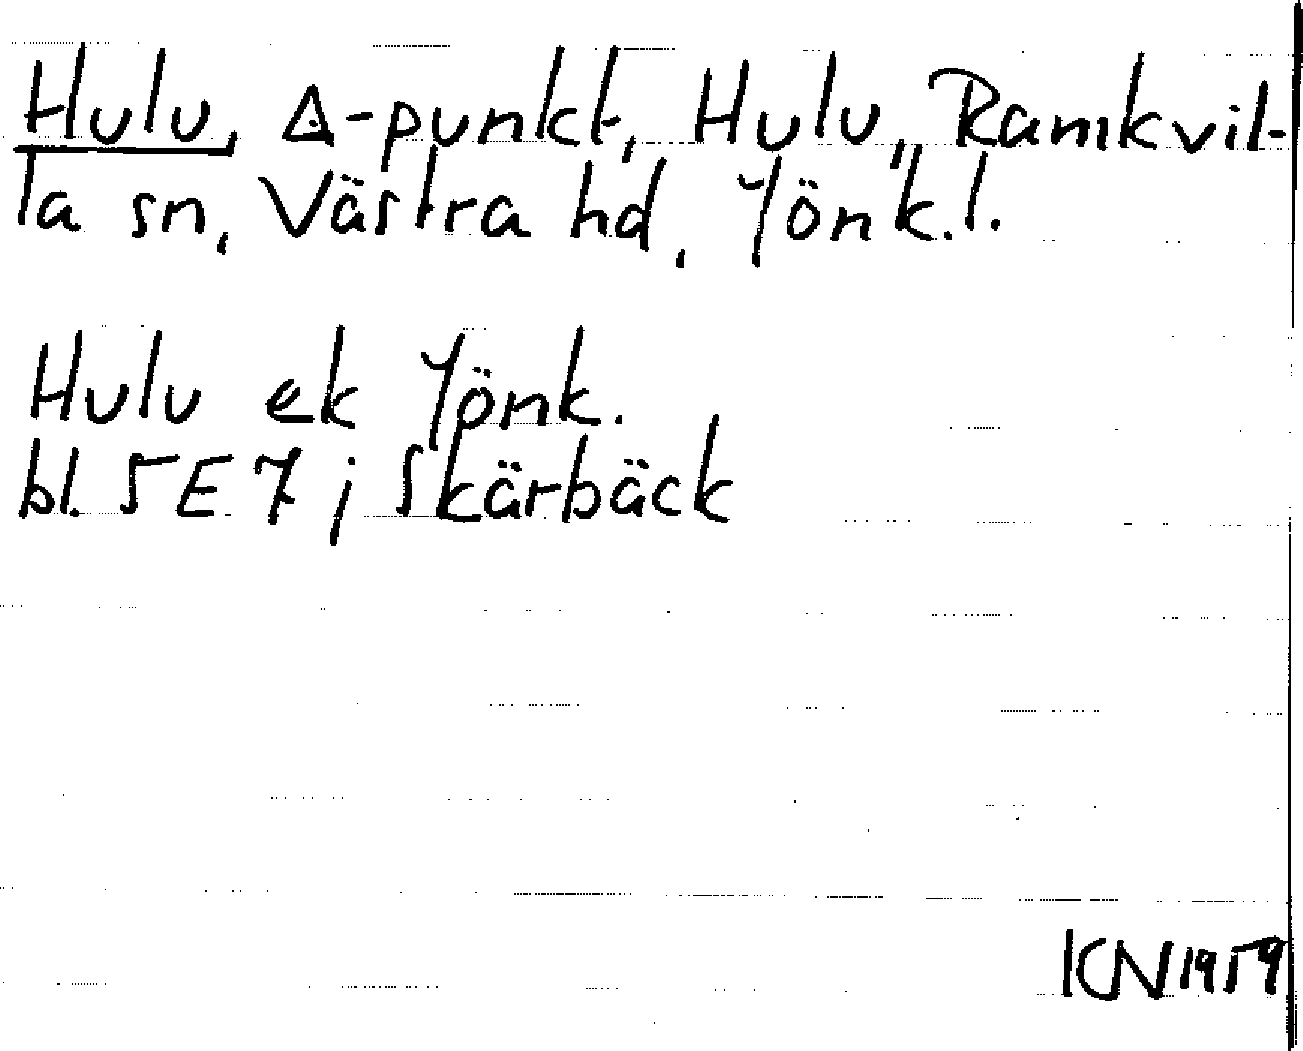 Hulu, ∆-punkt, Hulu, Ramkvil-
la sn, Västra hd, Jönk.l.
Hulu ek Jönk.
bl. 5E7; Skärbäck
KN 1959